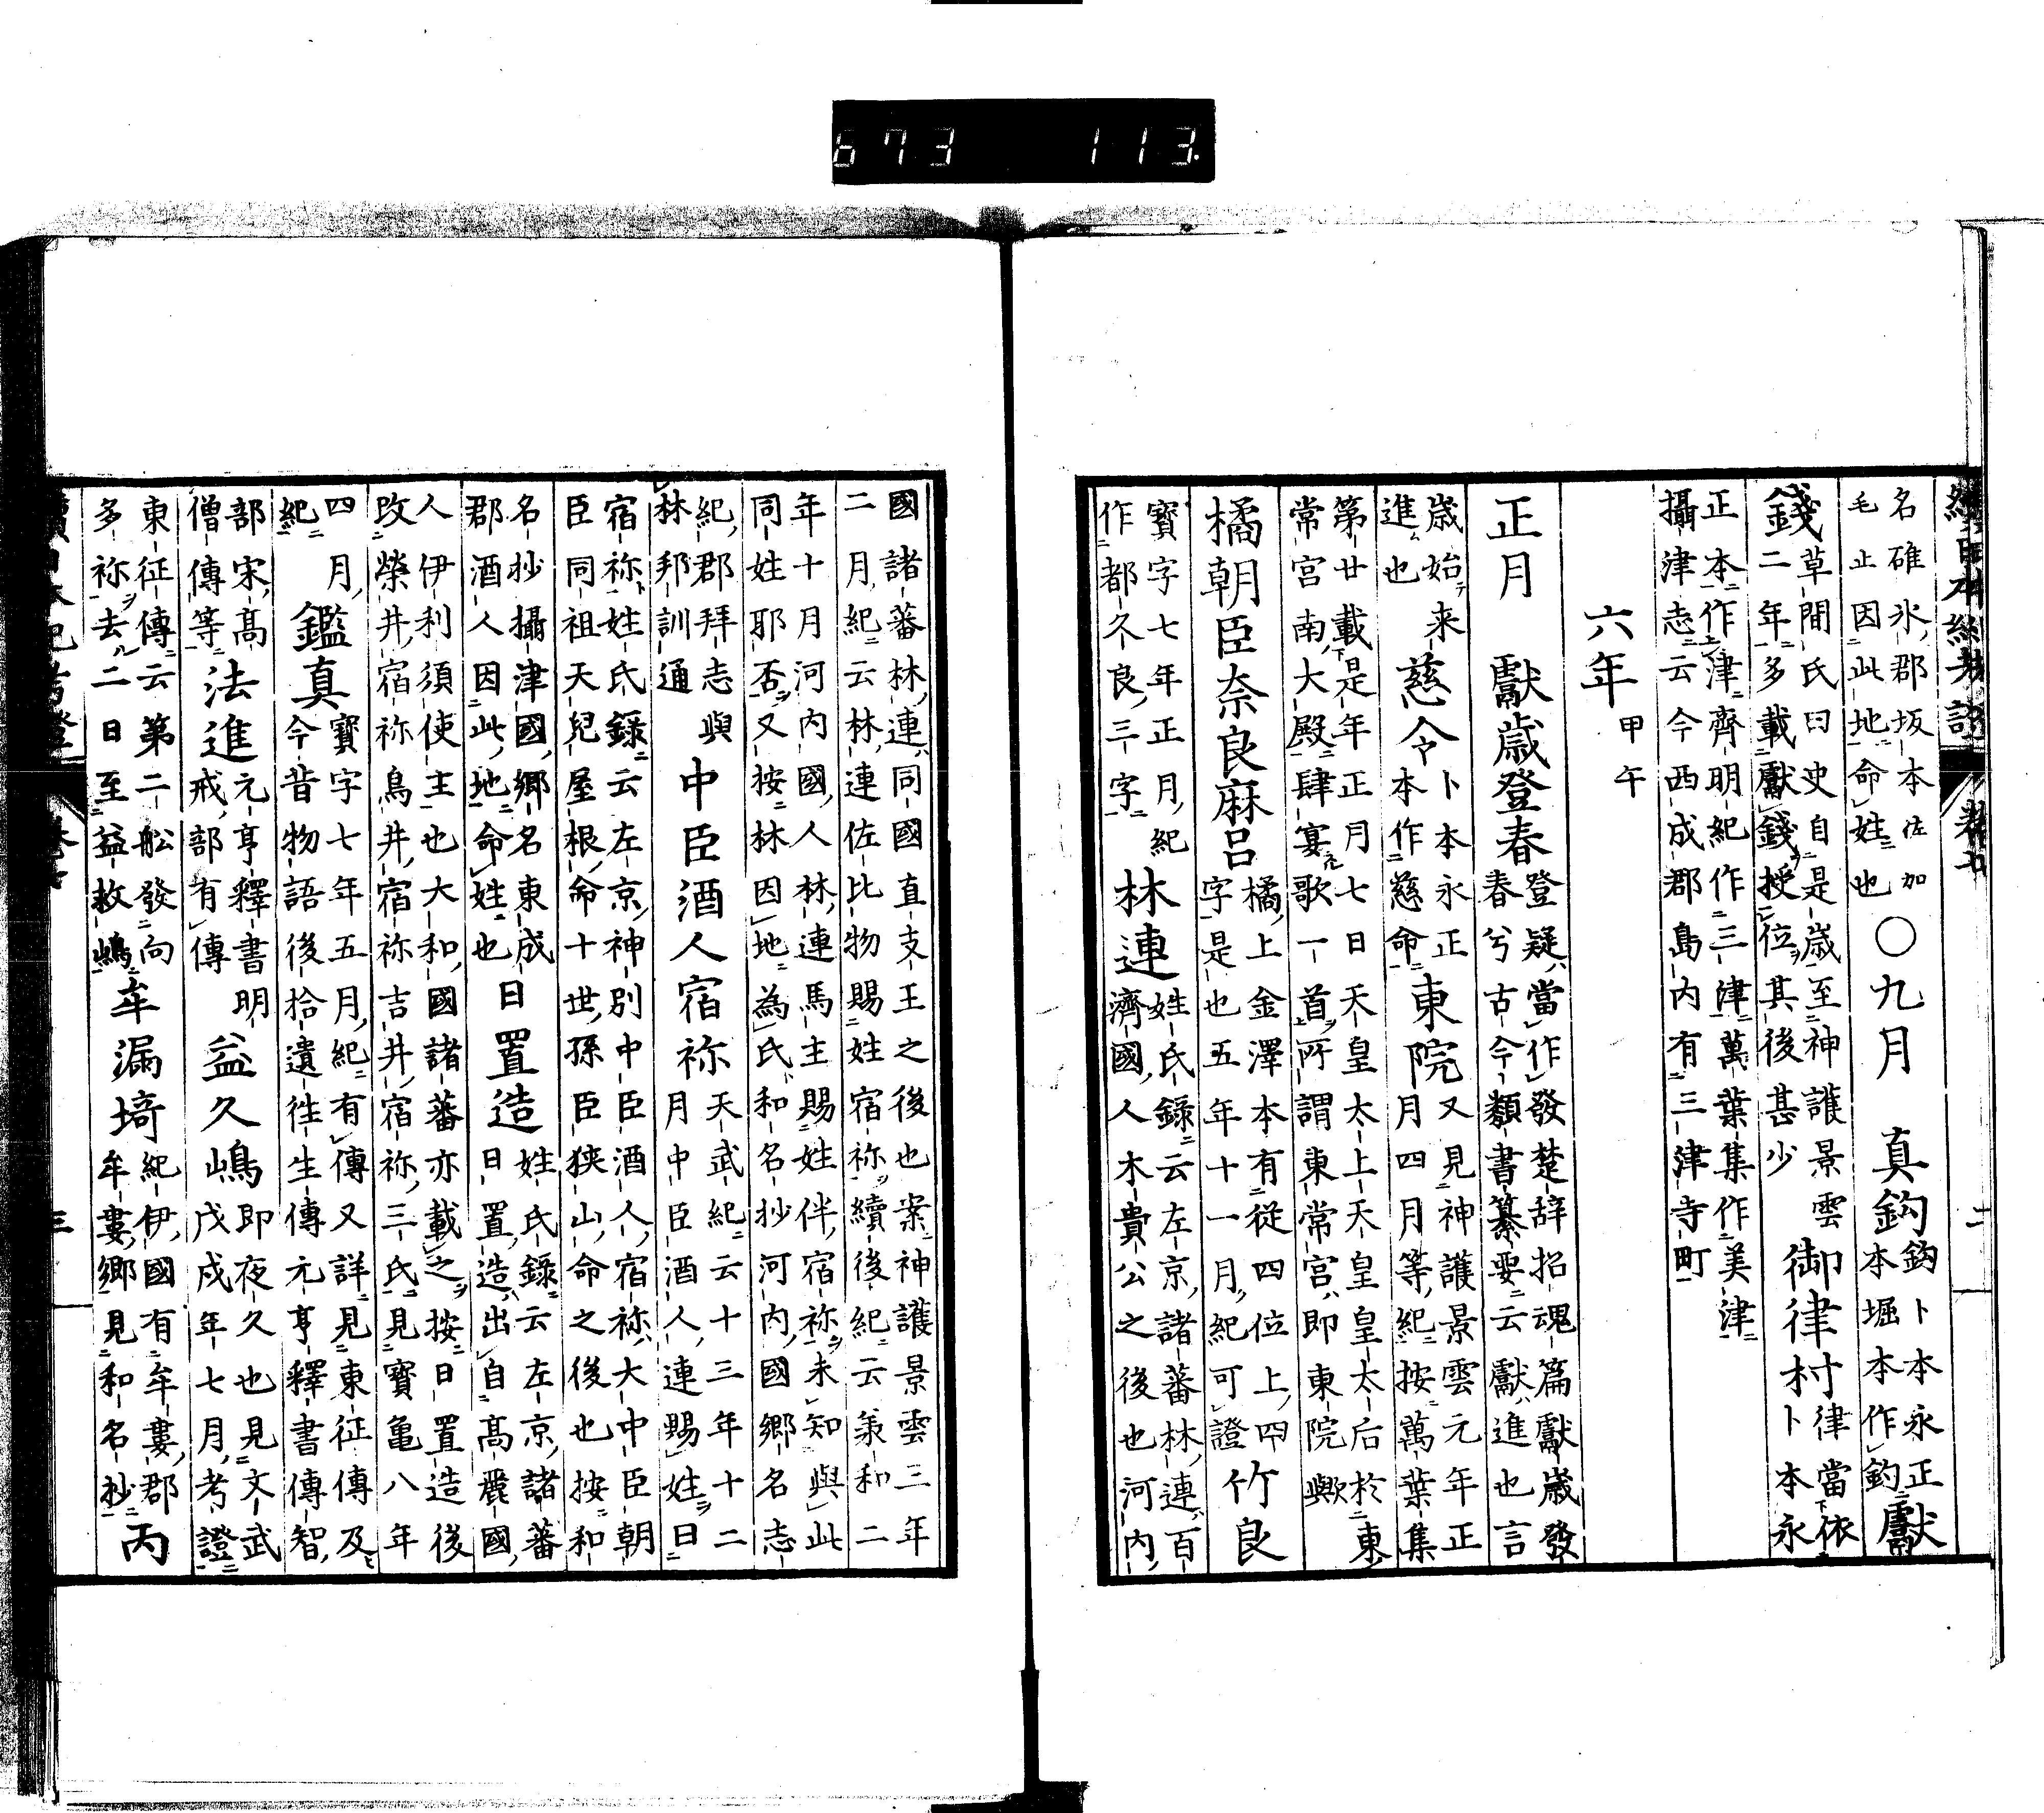 673 113.
名碓氷郡坂本佐加
毛止因此地命姓也
○九月 真鈎
鈎卜本永正
本堀本作釣
獻
錢
草間氏曰史自是歳至神護景雲
二年多載獻錢授位其後甚少
御律村
律當依
卜本永
正本作津齊明紀作三津萬葉集作美津
攝津志云今西成郡島内有三津寺町
六年甲午
正月 獻歳登春
登疑當作發楚辞招魂篇獻歳發
春兮古今類書纂要云獻進也言
歳始来
進也
慈令
卜本永正
本作慈命
東院
又見神護景雲元年正
月四月等紀按萬葉集
第廿載是年正月七日天皇太上天皇皇太后於東
常宮南大殿肆宴歌一首所謂東常宮即東院歟
橘朝臣奈良麻呂
橘上金澤本有從四位上四
字是也五年十一月紀可證
竹良
寳字七年正月紀
作都久良三字
林連
姓氏錄云左京諸蕃林連百
濟國人木貴公之後也河内
國諸蕃林連同國直支王之後也案神護景雲三年
二月紀云林連佐比物賜姓宿祢續後紀云義和二
年十月河内國人林連馬主賜姓伴宿祢未知與此
同姓耶否又按林因地為氏和名抄河内國郷名志
紀郡拜志與
林邦訓通
中臣酒人宿祢
天武紀云十三年十二
月中臣酒人連賜姓曰
宿祢姓氏錄云左京神別中臣酒人宿祢大中臣朝
臣同祖天兒屋根命十世孫臣狭山命之後也按和
名抄攝津國郷名東成
郡酒人因此地命姓也
日置造
姓氏錄云左京諸蕃
日置造出自高麗國
人伊利須使主也大和國諸蕃亦載之按日置造後
改榮井宿祢鳥井宿祢吉井宿祢三氏見寳亀八年
四月
紀
鑑真
寳字七年五月紀有傳又詳見東征傳及
今昔物語後拾遺往生傳元亨釋書傳智
部宋高
僧傳等
法進
元亨釋書明
戒部有傳
益久嶋
即夜久也見文武
戊戌年七月考證
東征傳云第二舩發向
多祢去二日至益救嶋
牟漏埼
紀伊國有牟婁郡
牟婁郷見和名抄
丙